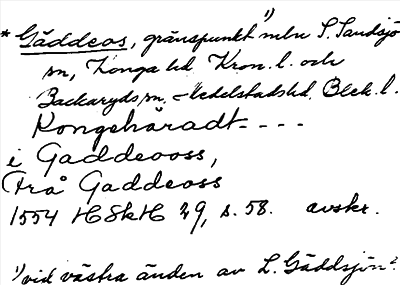 * Gäddeos, gränspunkt 1) mln S. Sandsjö
sn, Konga hd Kron. l. och
Backaryds sn, Medelstads hd, Blek. l.
Kongehäradt - - - -
i Gaddeooss,
(Frå Gaddeoss
1554 HSkH 29, s. 58. avskr.
1) vid västra änden av L. Gäddsjön.